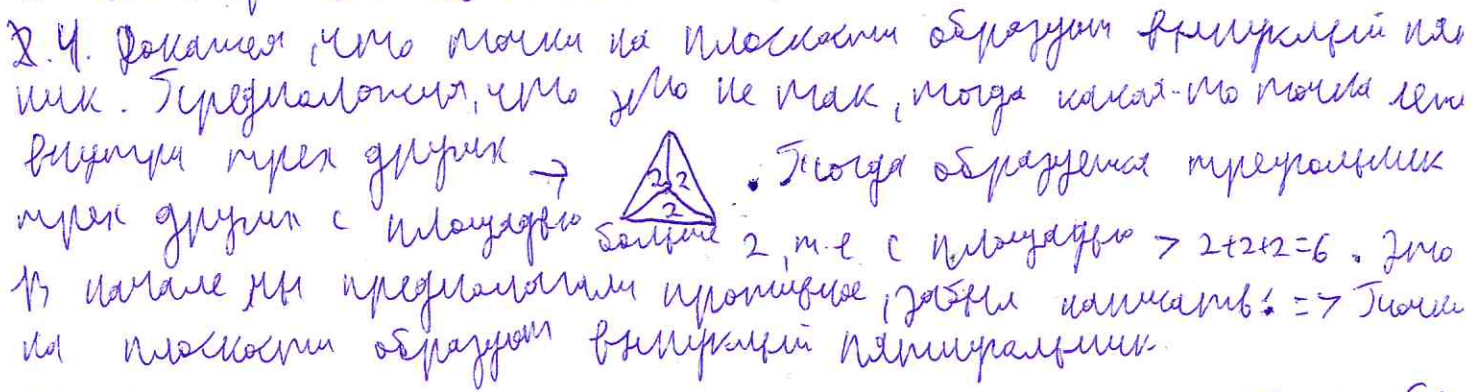 8.4. Докажем, что точки на плоскости образуют выпуклый пя
ник. Предположим, что это не так, тогда какая-то точка леж
внутри трех других → 2 2 2 . Тогда образуется треугольник
трех других с площадью больше 2, т.е с площадью > 2+2+2=6. Это
В начале мы предполагали противное, забыл написать! => Точки
на плоскости образуют выпуклый пятиугольник.